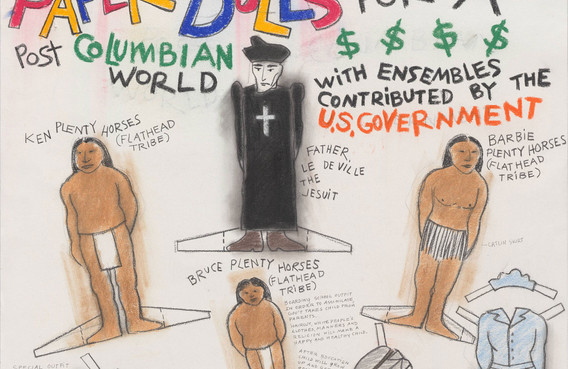 PAPER DOLLS FOR A
POST COLUMBIAN
WORLD
$ $ $ $
WITH ENSEMBLES
CONTRIBUTED BY THE
U.S. GOVERNMENT
KEN PLENTY HORSES
(FLATHEAD
TRIBE)
FATHER
LE DE VILLE
THE
JESUIT
BARBIE
PLENTY HORSES
(FLATHEAD
TRIBE)
BRUCE PLENTY HORSES
(FLATHEAD
TRIBE)
BOARDING SCHOOL OUTFIT
IN ORDER TO ASSIMILATE
GOV'T TAKES CHILD FROM
PARENTS.
WHITE PEOPLE'S
CLOTHES, MANNERS AND
RELIGION WILL MAKE A
HAPPY AND HEALTHY CHILD.
AFTER EDUCATION
CHILD WILL GROW
SPECIAL OUTFIT